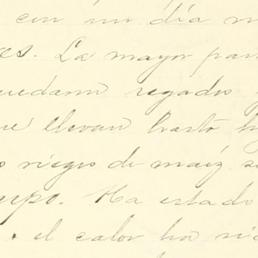 con un día m
es. La mayor par
quedarán regados
que llevan hasta h
s riegos de maíz se
erpo. Ha estado
. el calor ha si